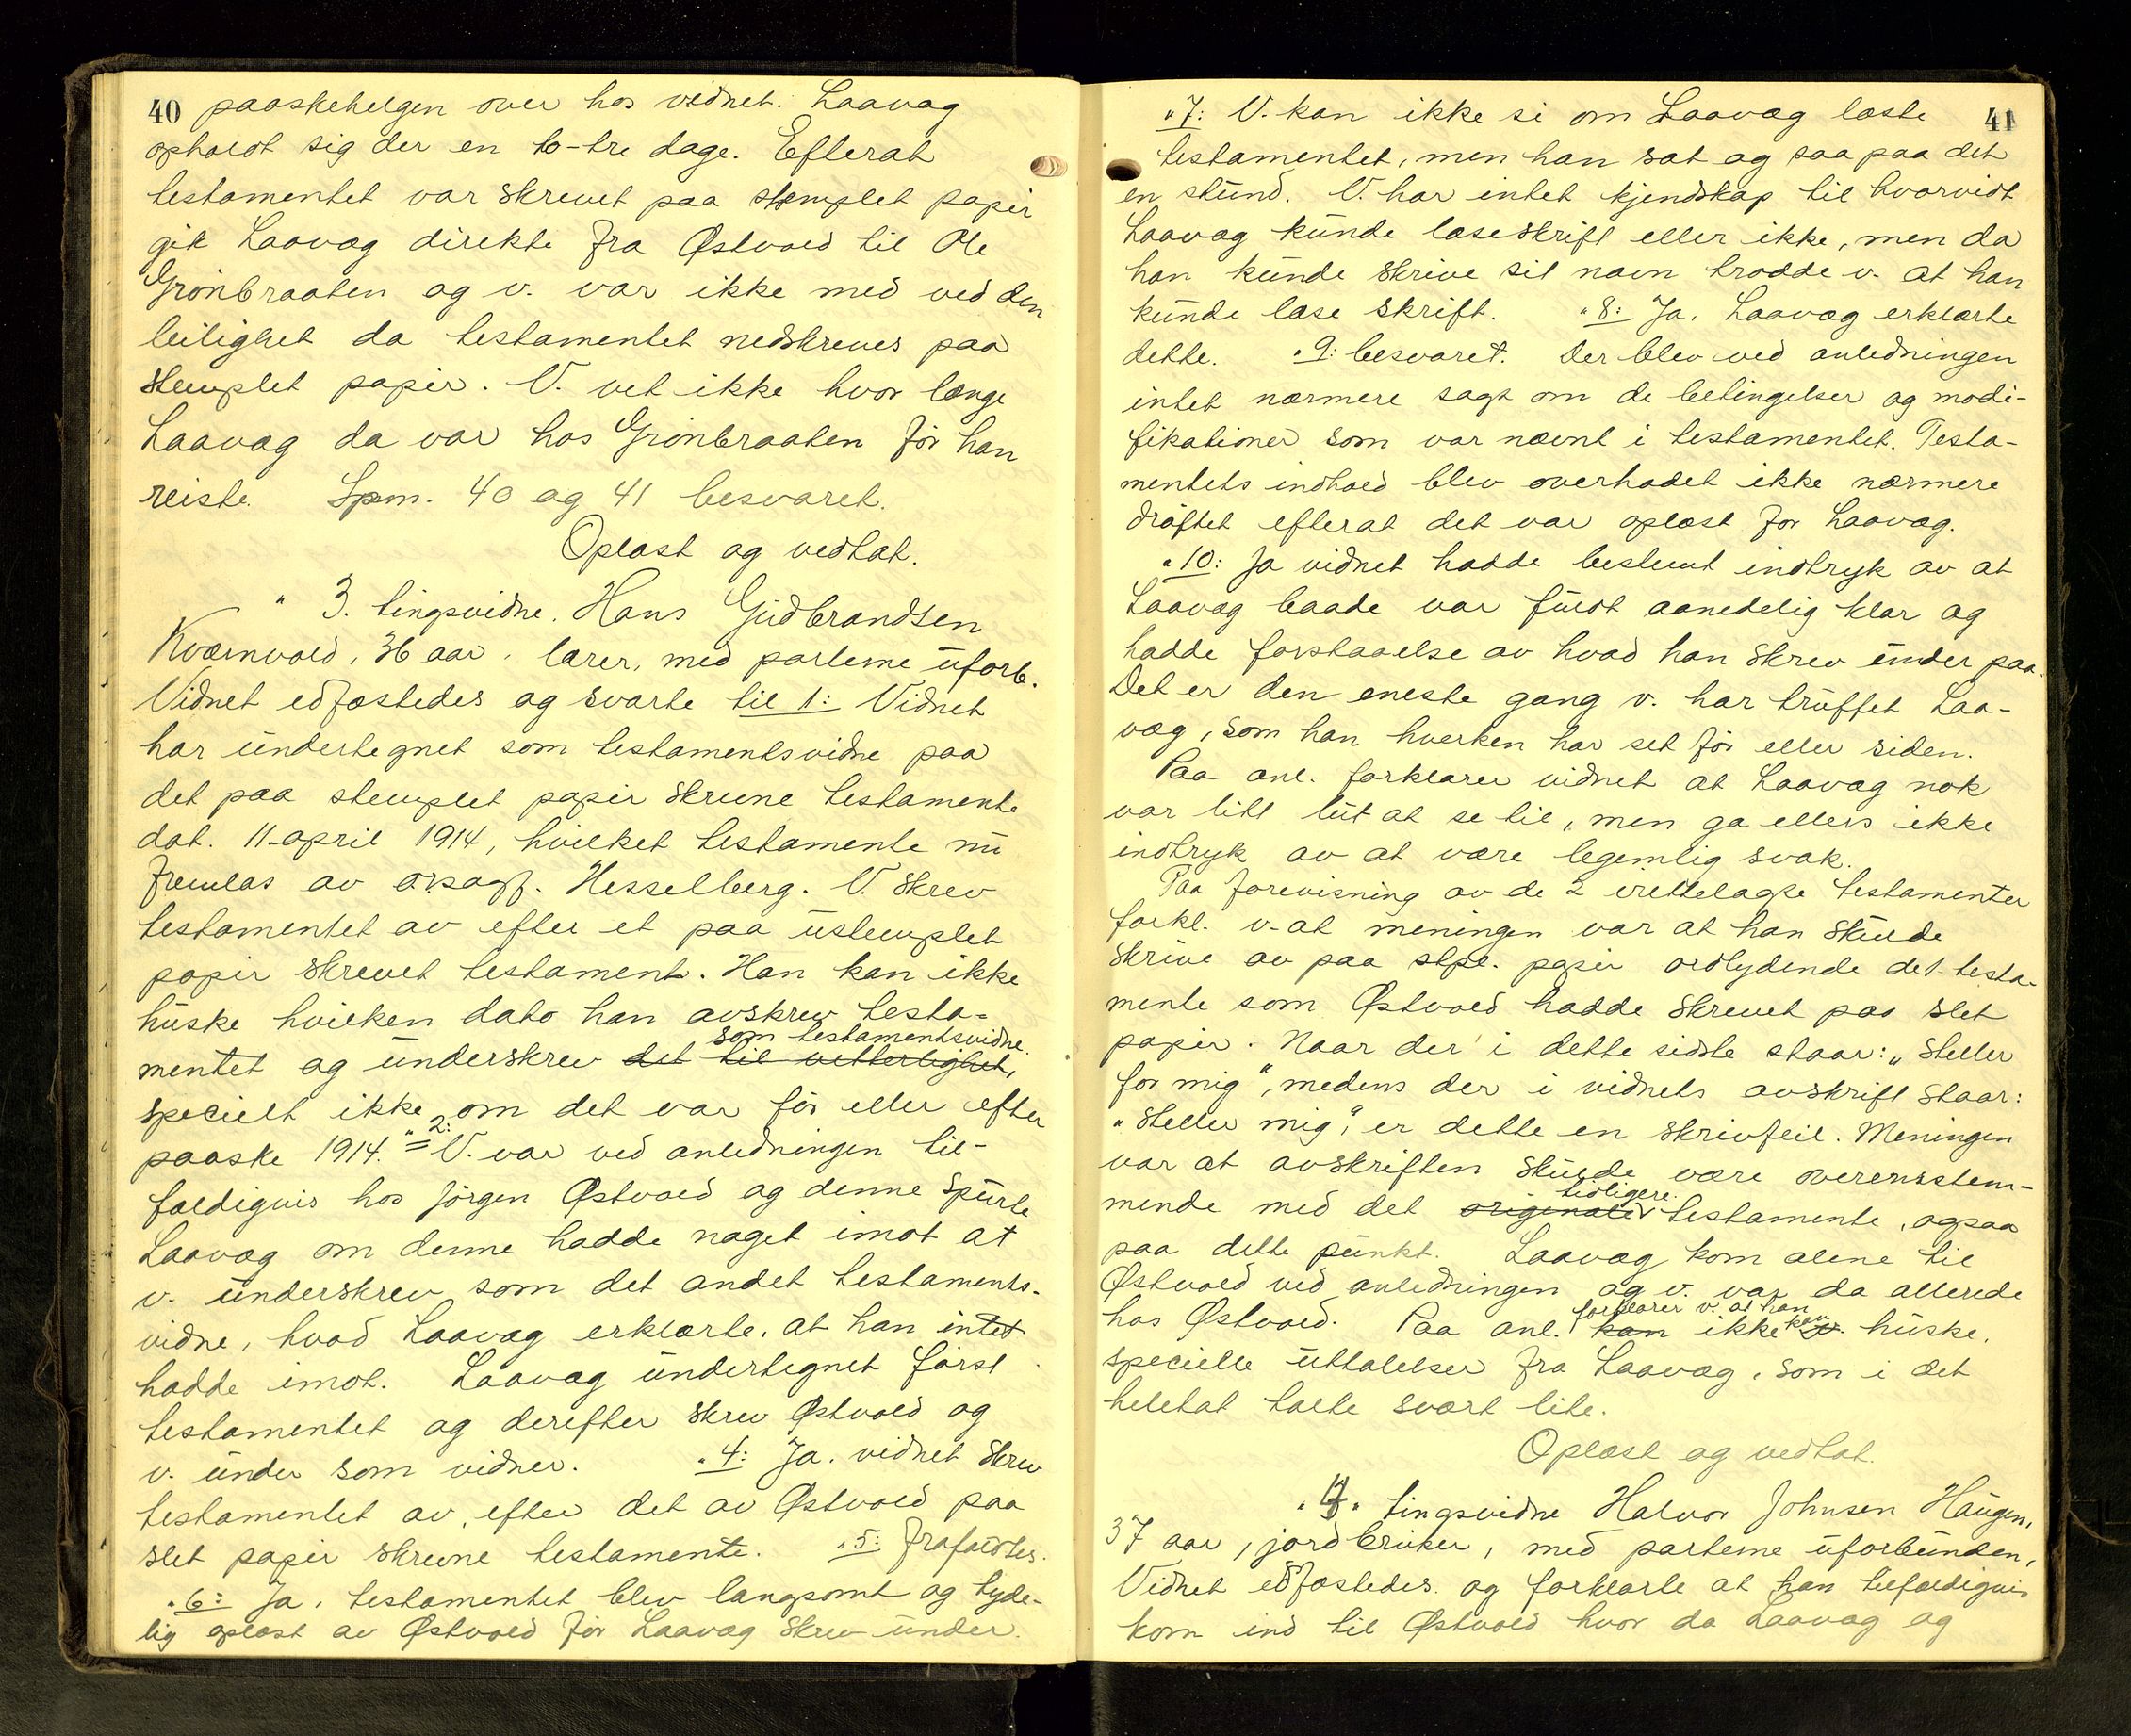 40 paaskehelgen over hos vidnet. Laavag
opholdt sig der en to-tre dage. Efterat
testamentet var skrevet paa stemplet papir
gik Laavag direkte fra Østvold til Ole
Grønbraaten og v. var ikke med ved den
leilighet da testamentet nedskreves paa
stemplet papir. V. vet ikke hvor længe
Laavag da var hos Grønbraaten før han
reiste. Spm. 40 og 41 besvaret.
Oplæst og vedtat.
" 3. tingsvidne. Hans Gudbrandsen
Kværnvold, 36 aar, lærer, med parterne uforb.
Vidnet edfæstedes og svarte til 1: Vidnet
har undertegnet som testamentsvidne paa
det paa stemplet papir skrevne testamente
dat. 11 april 1914, hvilket testamente nu
fremlas av o.r.sagf. Hesselberg. V. skrev
testamentet av efter et paa ustemplet
papir skrevet testament. Han kan ikke
huske hvilken dato han avskrev testa-
som testamentsvidne.
mentet og underskrev det til vetterlighet,
specielt ikke om det var før eller efter
paaske 1914. " 2: V. var ved anledningen til-
fældigvis hos Jørgen Østvold og denne spurte
Laavag om denne hadde noget imot at
v. underskrev som det andet testaments-
vidne, hvad Laavag erklærte, at han intet
hadde imot. Laavag undertegnet først
testamentet og derefter skrev Østvold og
v. under som vidner. " 4: Ja. vidnet skrev
testamentet av, efter det av Østvold paa
slet papir skrevne testamente. " 5: frafaldtes.
" 6: Ja, testamentet blev langsomt og tyde-
lig oplæst av Østvold før Laavag skrev under.
" 7: V. kan ikke si om Laavag læste 41
testamentet, men han sat og saa paa det
en stund. V. har intet kjendskap til hvorvidt
Laavag kunde læse skrift eller ikke, men da
han kunde skrive sit navn trodde v. at han
kunde læse skrift. " 8: Ja, Laavag erklærte
dette. " 9: besvaret. Der blev ved anledningen
intet nærmere sagt om de betingelser og modi-
fikationer som var nævnt i testamentet. Testa-
mentets indhold blev overhodet ikke nærmere
drøftet efterat det var oplæst for Laavag.
" 10: Ja vidnet hadde bestemt indtryk av at
Laavag baade var fuldt aandelig klar og
hadde forstaaelse av hvad han skrev under paa.
Det er den eneste gang v. har truffet Laa-
vag, som han hverken har set før eller siden.
Paa anl. forklarer vidnet at Laavag nok
var litt lut at se til, men ga ellers ikke
indtryk av at være legemlig svak.
Paa forevisning av de 2 irettelagte testamenter
forkl. v. at meningen var at han skulde
skrive av paa stpl. papir ordlydende det testa-
mente som Østvold hadde skrevet paa slet
papir. Naar der i dette sidste staar: "steller
for mig", medens der i vidnets avskrift staar:
"steller mig", er dette en skrivfeil. Meningen
var at avskriften skulde være overensstem-
tidligere
mende med det originale testamente, ogsaa
paa dette punkt. Laavag kom alene til
Østvold ved anledningen og v. var da allerede
forklarer v. at han
hos Østvold. Paa anl. kan ikke kan v. huske,
specielle uttalelser fra Laavag, som i det
heletat talte svært lite.
Oplæst og vedtat.
" 4. tingsvidne Halvor Johnsen Haugen,
37 aar, jordbruker, med parterne uforbunden,
Vidnet edfæstedes og forklarte at han tilfældigvis
kom ind til Østvold hvor da Laavag og